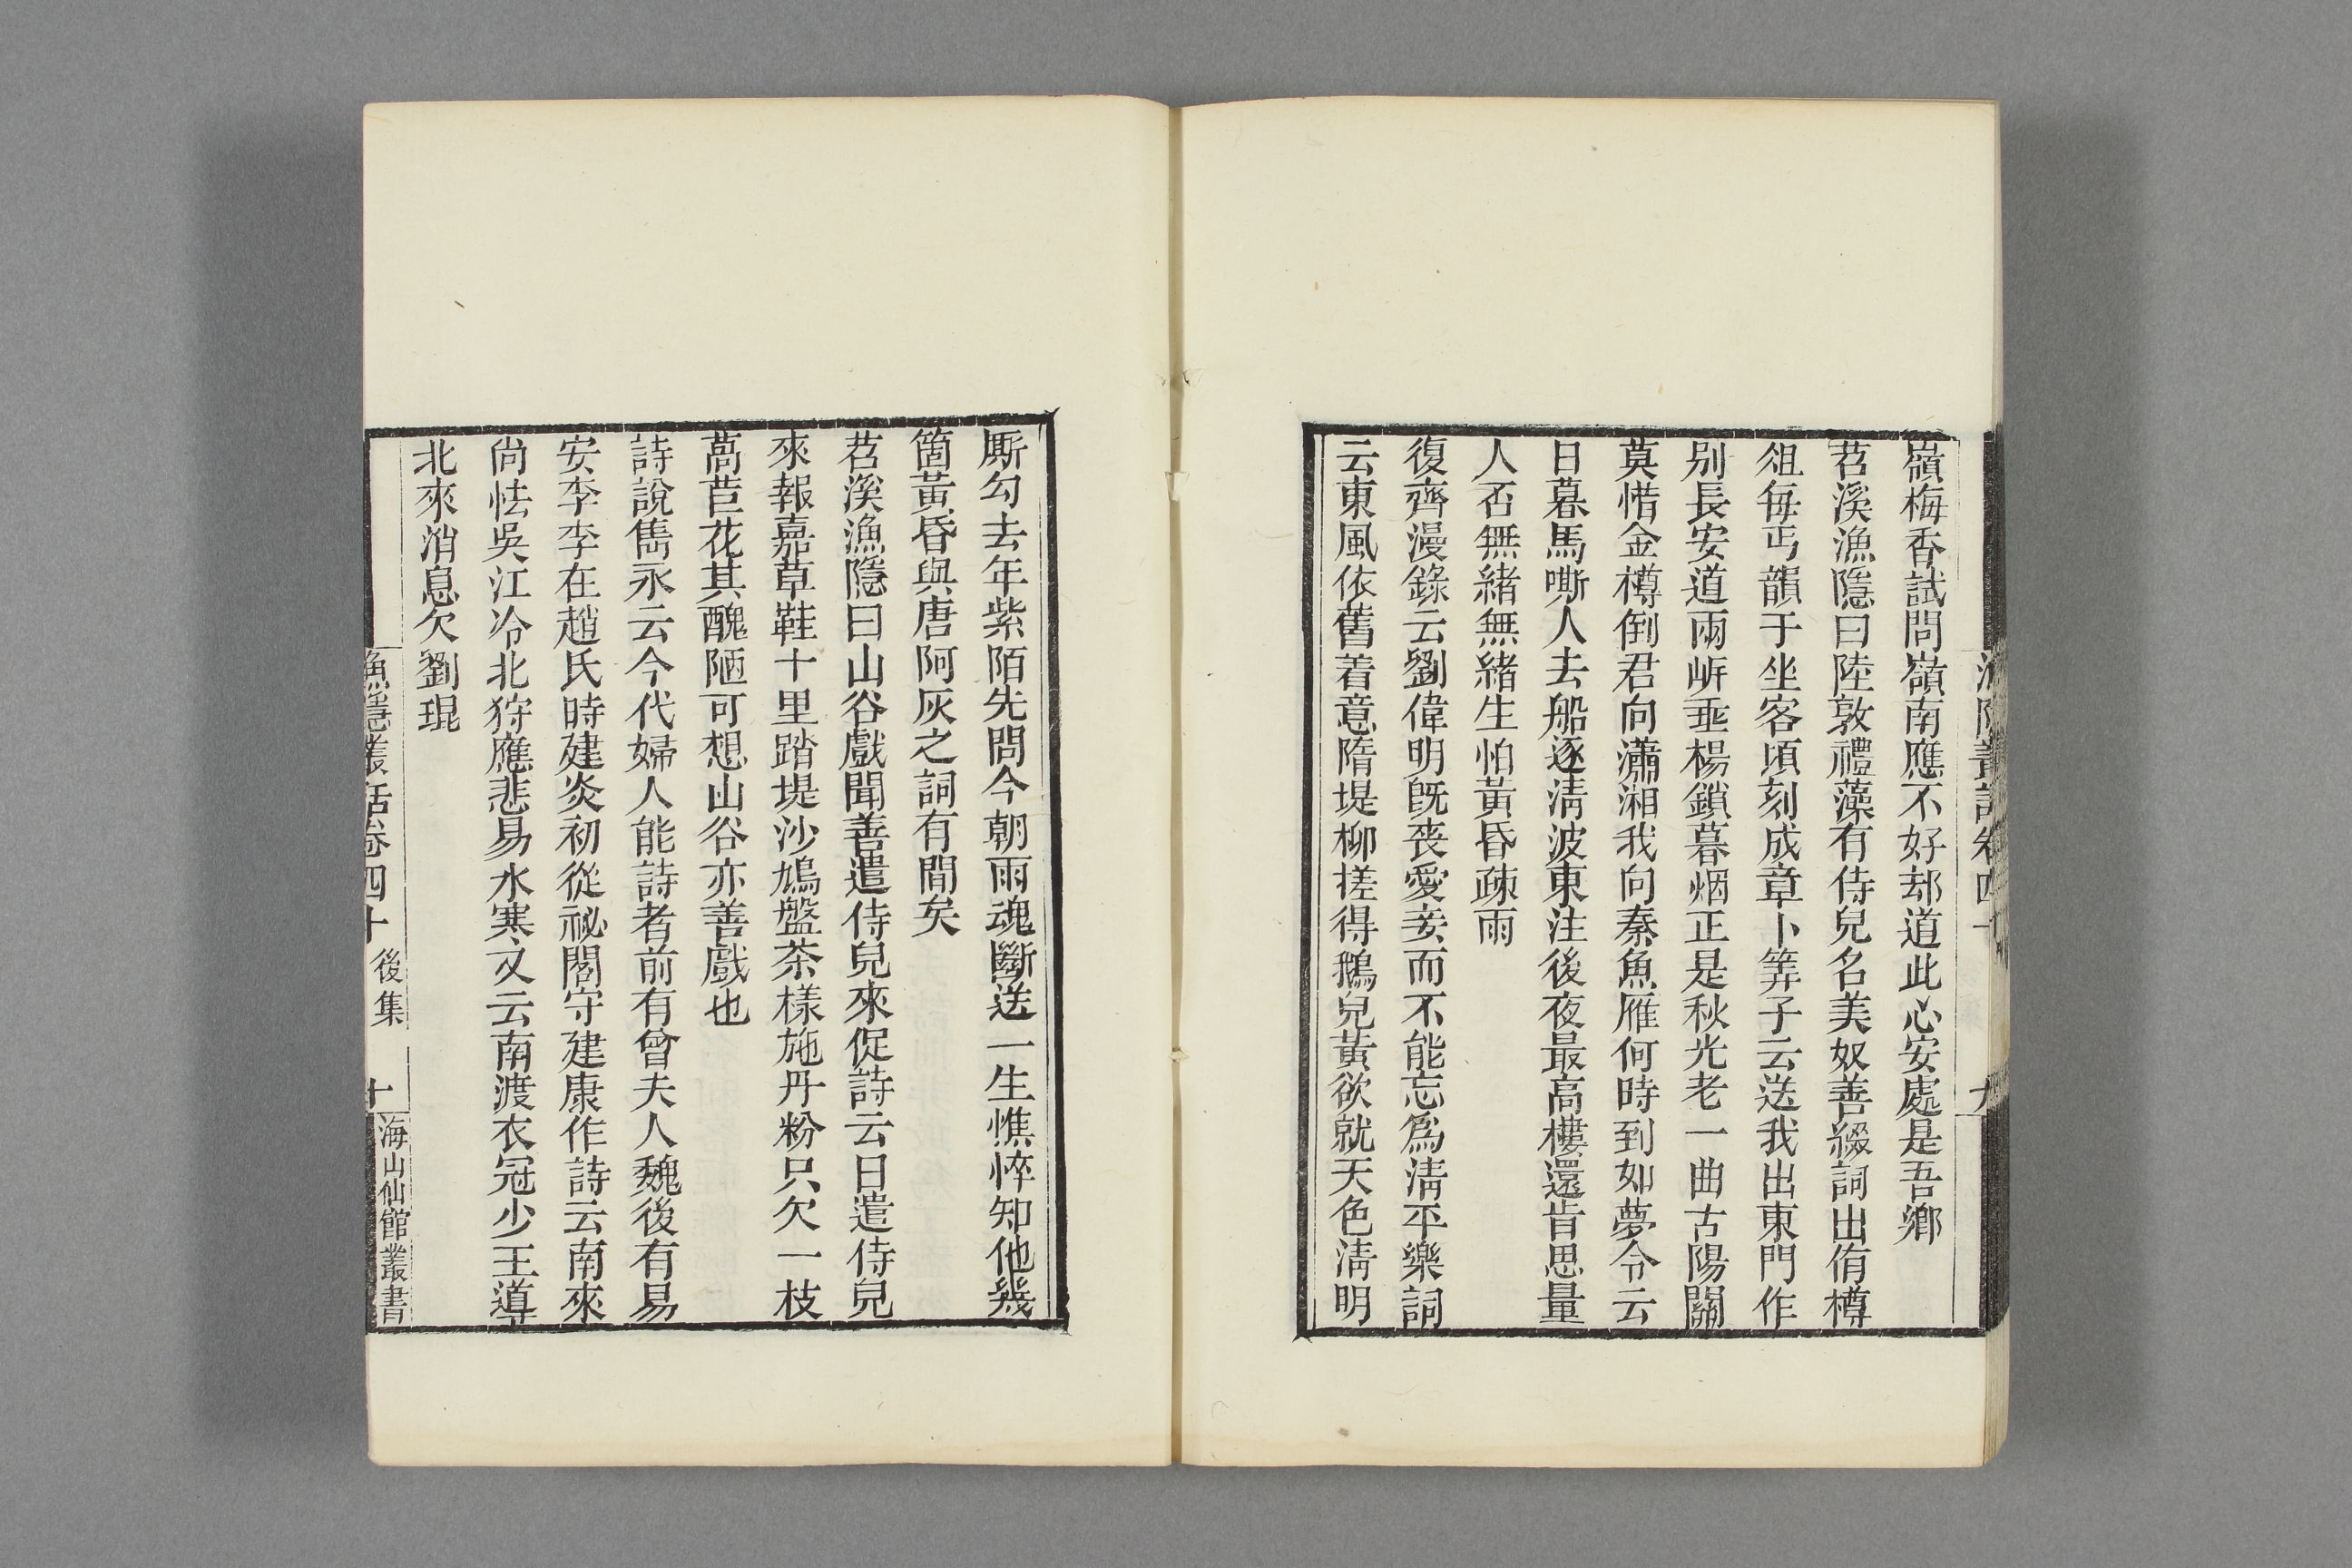 漁隱叢話卷四十
九
嶺梅香試問嶺南應不好却道此心安處是吾鄉
苕溪漁隱曰陸敦禮藻有侍兒名美奴善綴詞出侑樽
俎每丐韻于坐客頃刻成章卜筭子云送我出東門作
别長安道兩岍垂楊鎖暮烟正是秋光老一曲古陽關
莫惜金樽倒君向瀟湘我向秦魚雁何時到如夢令云
日暮馬嘶人去船逐淸波東注後夜最高樓還肯思量
人否無緒無緒生怕黃昏疎雨
復齋漫錄云劉偉明旣喪愛妾而不能忘爲淸平樂詞
云東風依舊着意隋堤柳搓得鵝兒黃欲就天色淸明
厮勾去年紫陌先問今朝雨魂斷送一生憔悴知他幾
箇黃昏與唐阿灰之詞有間矣
苕溪漁隱曰山谷戲聞善遣侍兒來促詩云日遣侍兒
來報嘉草鞋十里踏堤沙鳩盤茶樣施丹粉只欠一枝
萵苣花其醜陋可想山谷亦善戲也
詩說雋永云今代婦人能詩者前有曾夫人魏後有易
安李李在趙氏時建炎初從祕閣守建康作詩云南來
尙怯吳江冷北狩應悲易水寒又云南渡衣冠少王導
北來消息欠劉琨
漁隱叢話卷四十 後集
十
海山仙館叢書